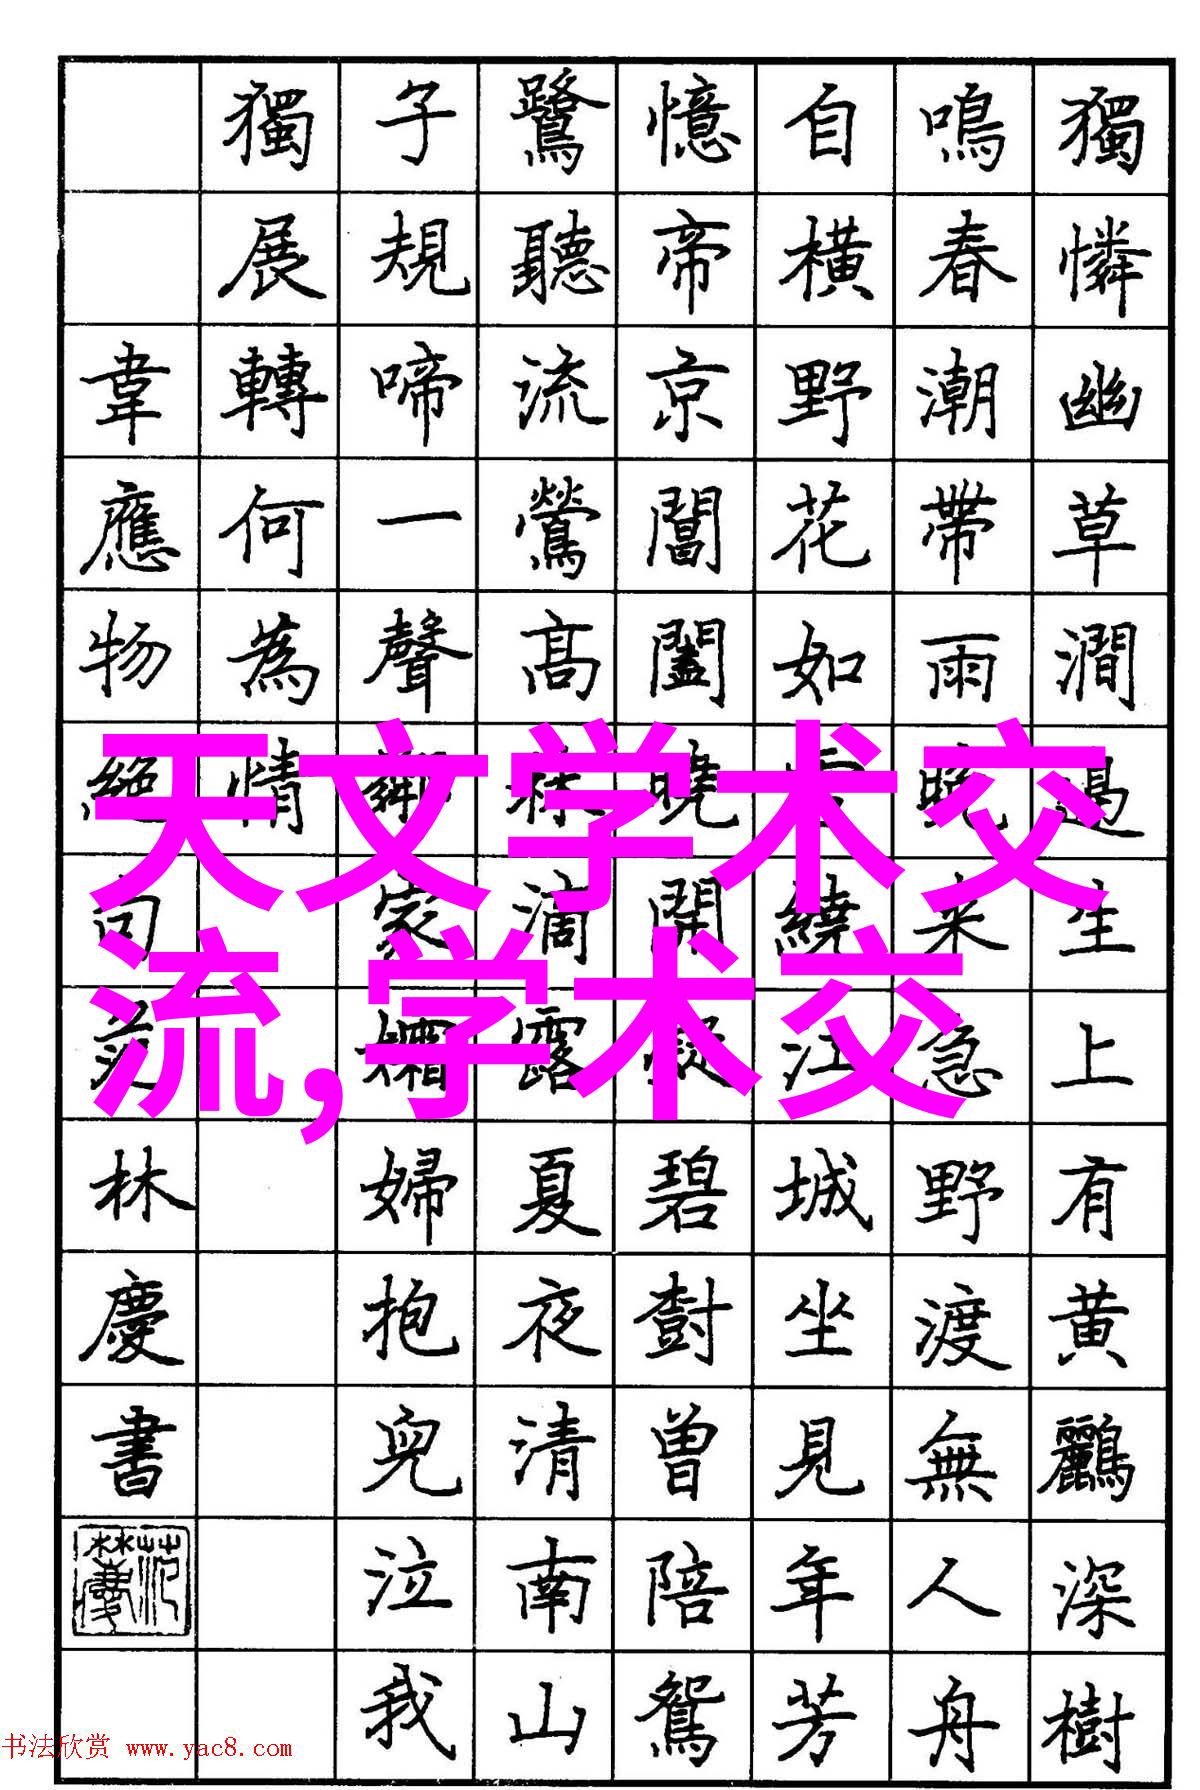 獨憐幽草澗邊生上有黄鸝深樹
鳴春潮帶雨晚来急野渡無人舟
自橫野花如雪繞江城坐見年芳
憶帝京閶闔曉開凝碧樹曾陪鴛
鷺聽流鶯高林滴露夏夜清南山
子規啼一聲鄰家孀婦抱兒泣我
獨展轉何為情
韋應物絕句范林慶書
天文学术交
流,学术交
书法欣赏 www.yac8.com